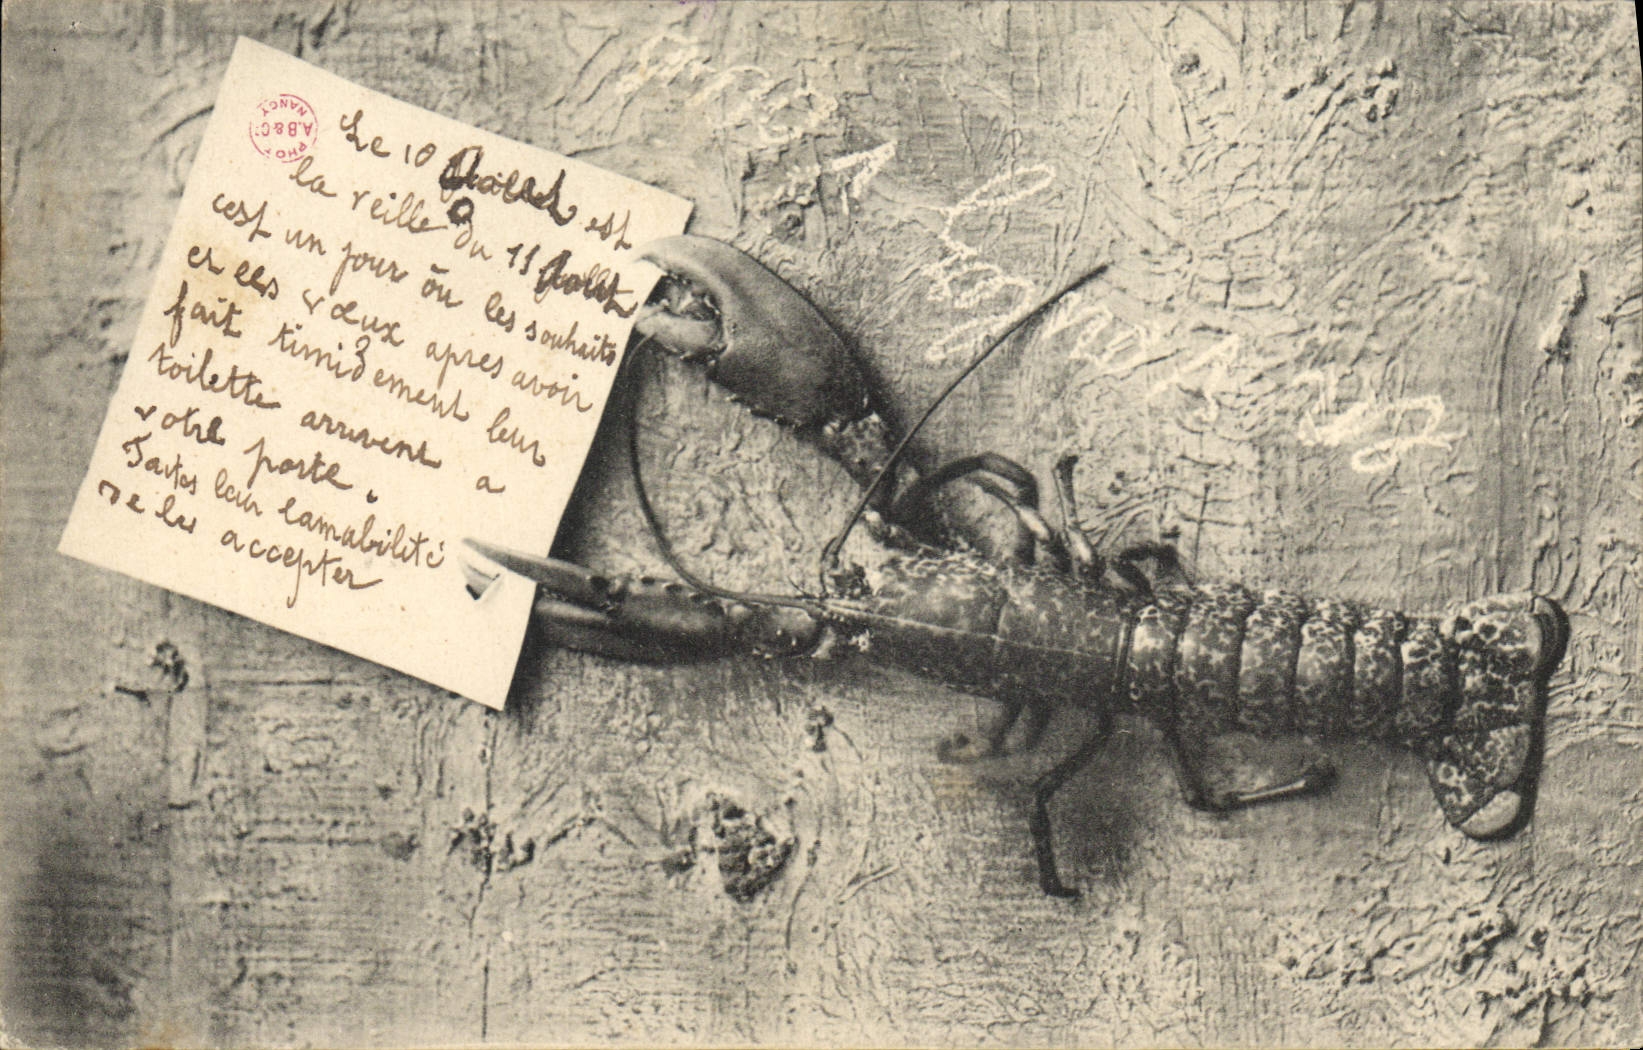 PHOT A.B & Co NANCY
Le 10 Juillet est
la veille du 11 Juillet
cest un jour õu les souhaits
et les vœux apres avoir
fait timidement leur
toilette arrivent a
votre porte.
Faites leur lamabilité
de les accepter